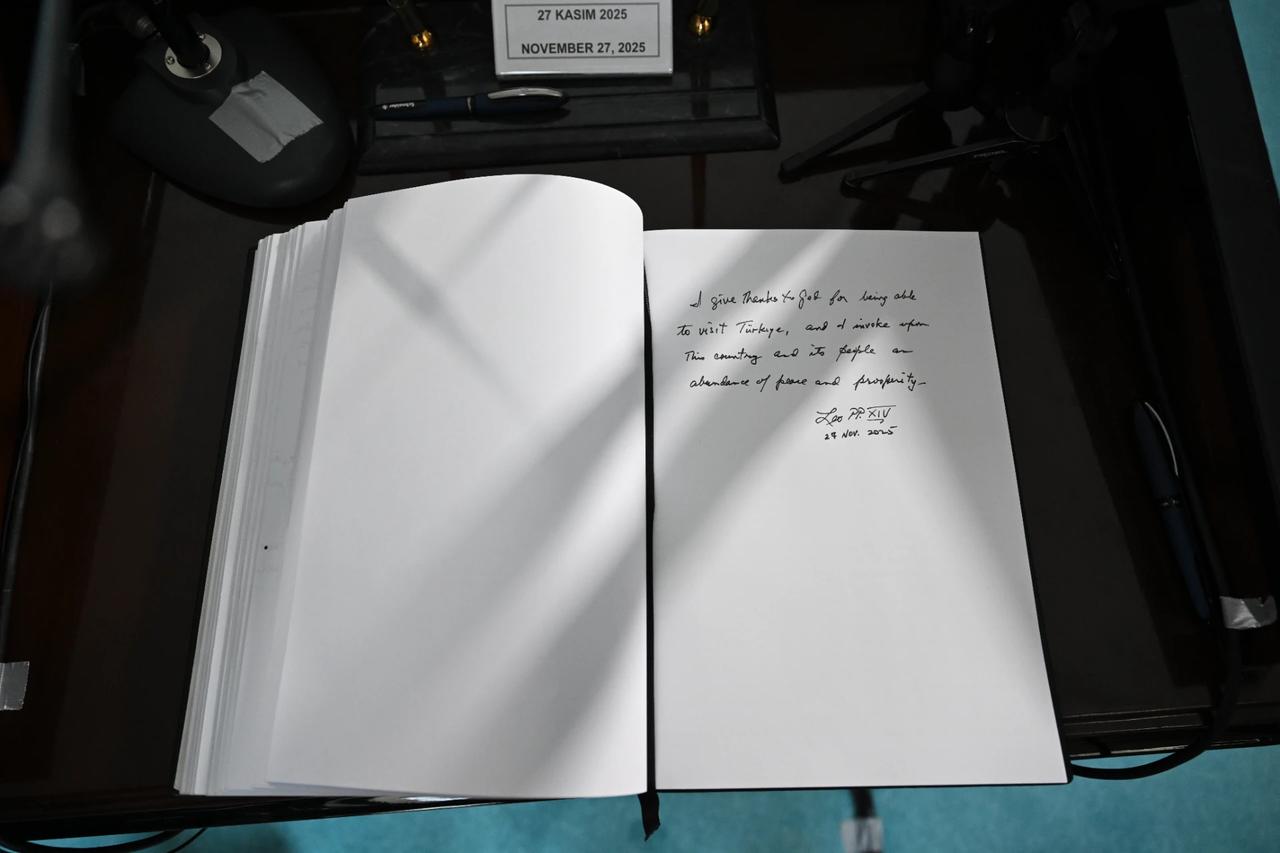 27 KASIM 2025
NOVEMBER 27, 2025
Schneider
I give thanks to God for being able
to visit Türkiye, and I invoke upon
this country and its people an
abundance of peace and prosperity
Leo PP. XIV
27 Nov. 2025